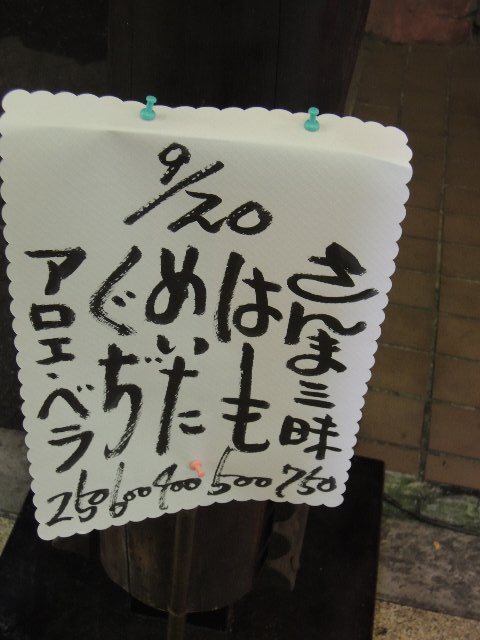 9/20
さんま三昧
750
はも
500
めいた‎
400
ぐぢ
600
アロエ・ベラ
250